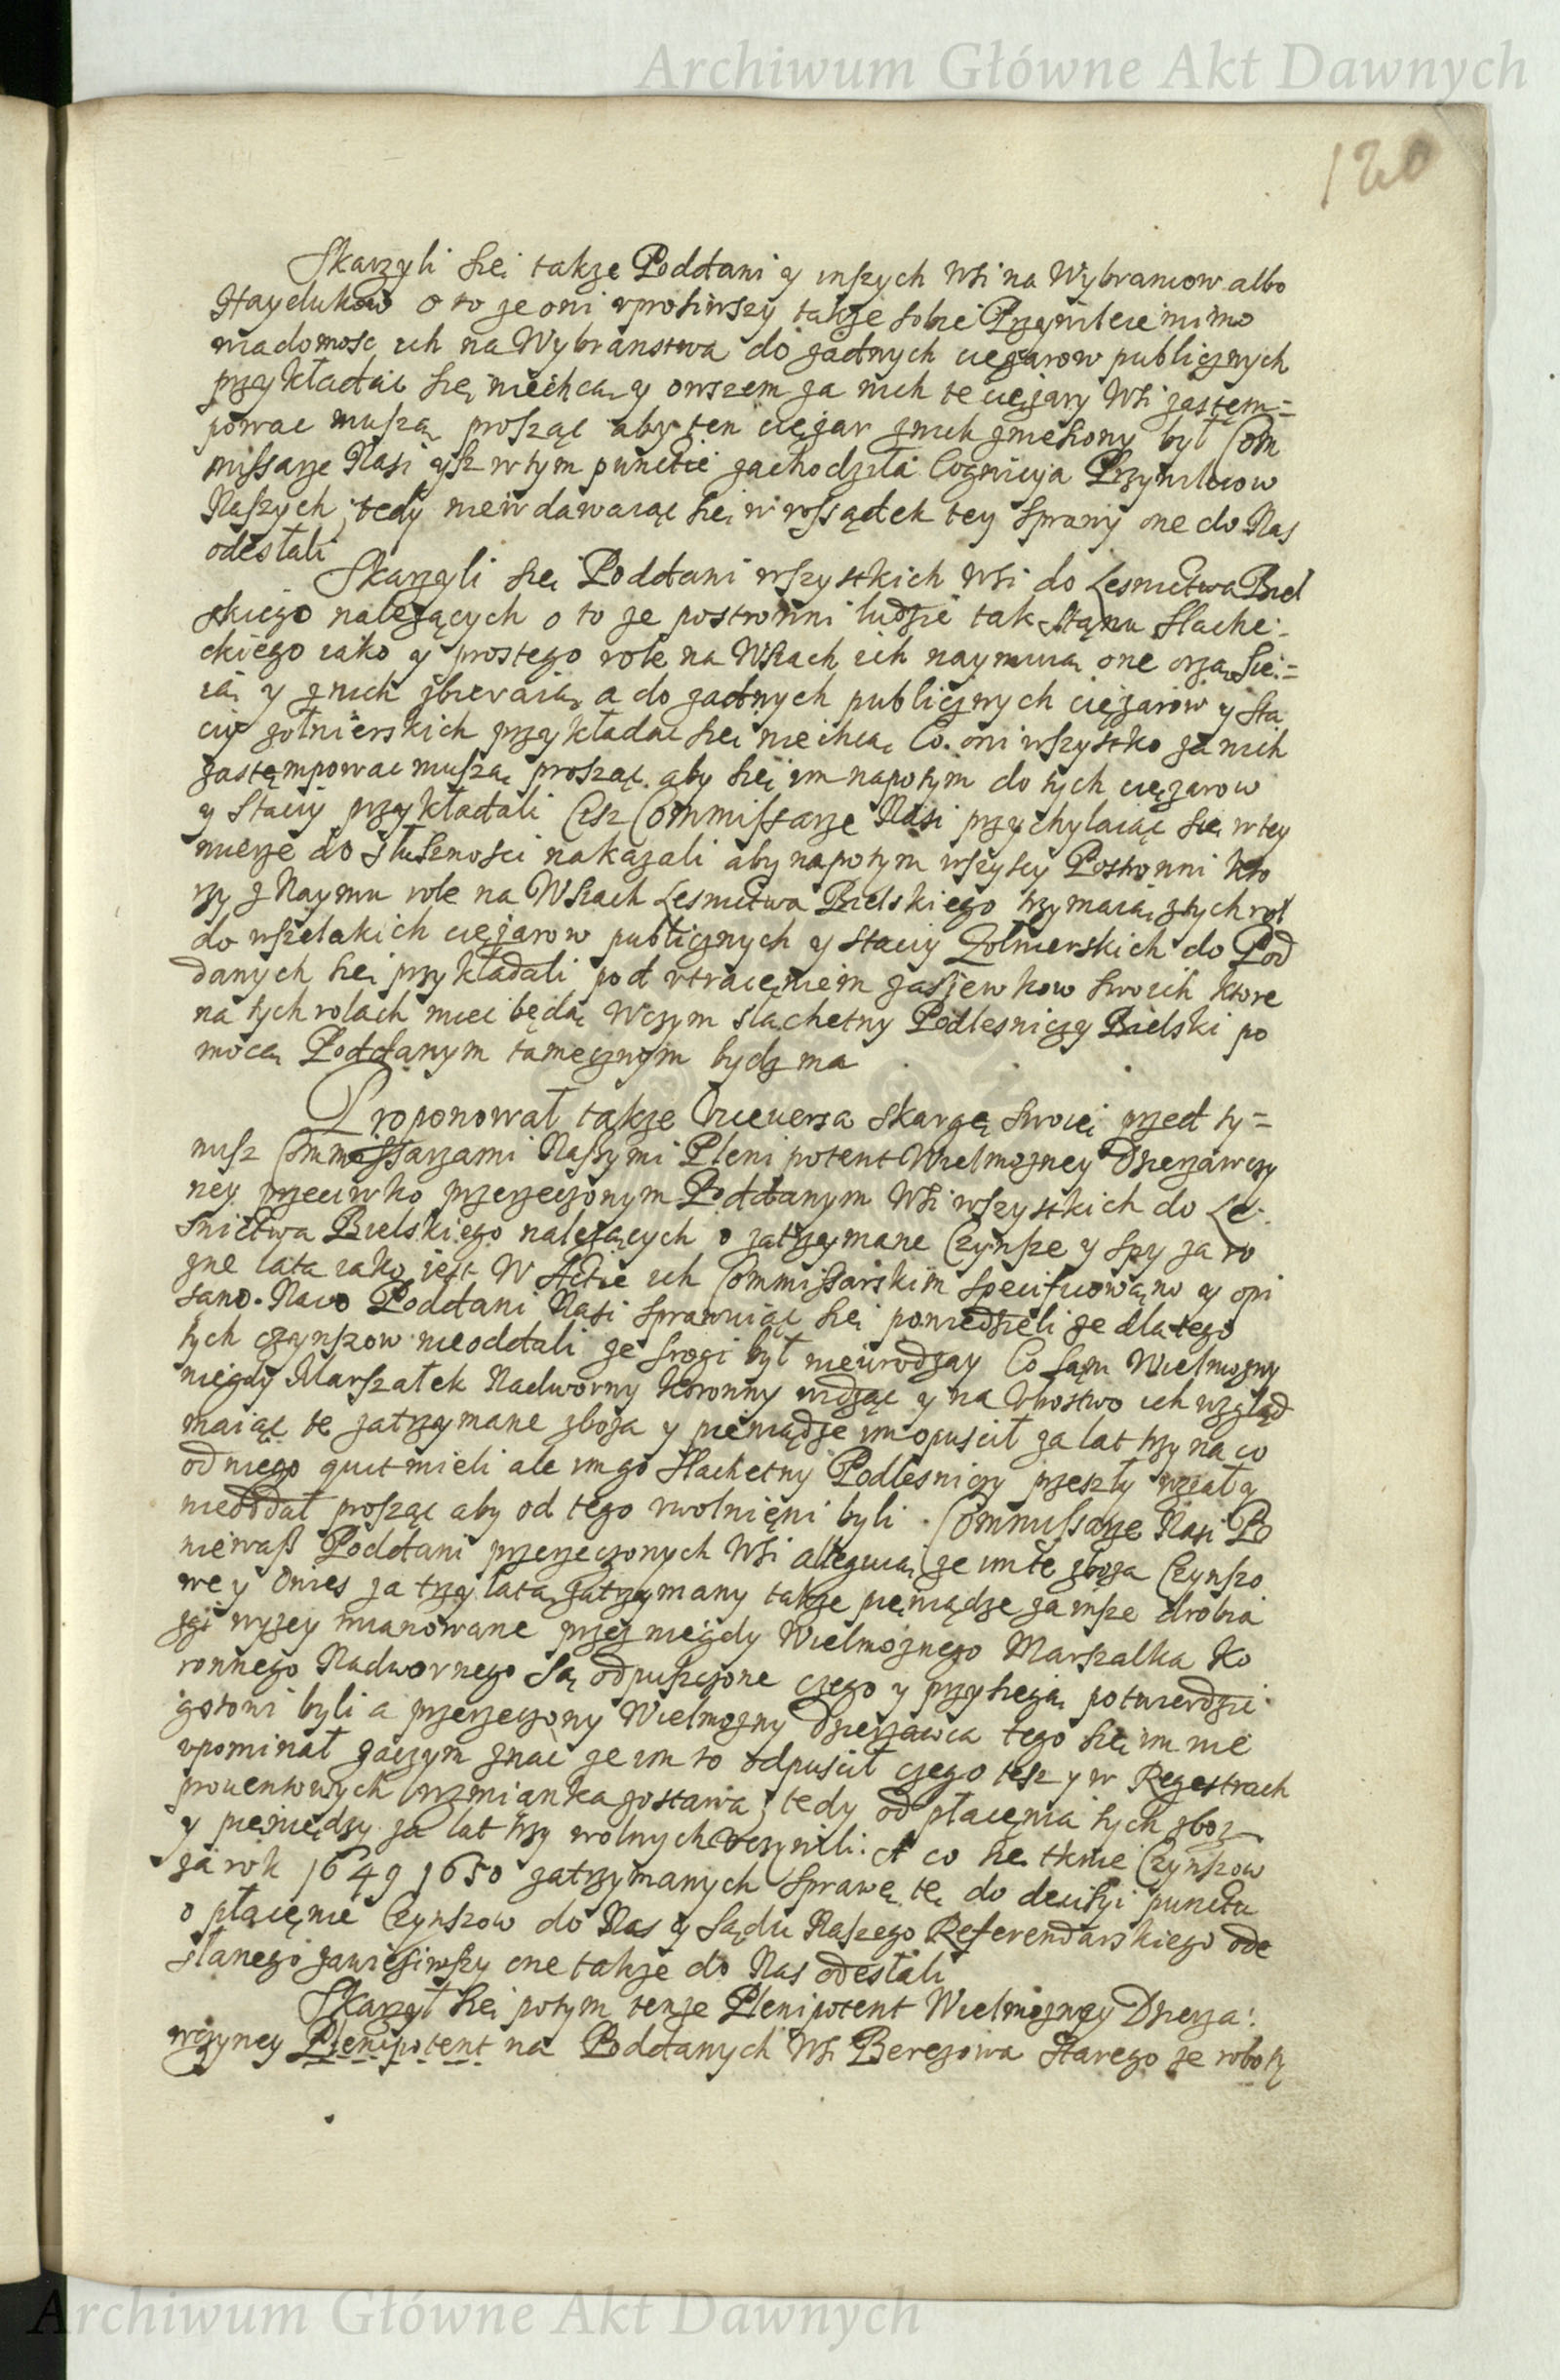 Archiwum Główne Akt Dawnych
120
Skarzyli się takze Poddani y inszych Wsi na Wybrancow albo
Haydukow o to ze oni vprosiwszy takze sobie Przywileie mimo
wiadomosc ich na Wybranstwa do zadnych cięzarow publicznych
przykładac się niechcą y owszem za nich te cięzary Wsi zastęm=
powac muszą prosząc aby ten cięzar znich zniesiony był Com
missarze Nasi ysz wtym puncie zachodziła Cognicya Przywileiow
Naszych, tedy niewdawaiąc się w rossądek tey sprawy one do Nas
odesłali
Skarzyli się Poddani wszystkich Wsi do Lesnictwa Biel
skiego nalezących o to ze postronni ludzie tak stanu slache-
ckiego iako y prostego role na Wsiach ich naymuią one orzą sie=
ią y znich zbieraią a do zadnych publicznych cięzarow y sta
ciy zołnierskich przykładac się niechcą Co oni wszystko za nich
zastęmpowac muszą prosząc aby się im napotym do tych cięzarow
y staciy przykładali Cisz Commissarze Nasi przychylaiąc się wtey
mierze do słusznosci nakazali aby napotym wszyscy Postronni kto
rzy z Naymu role na Wsiach Lesnictwa Bielskiego trzymaią ztych rol
do wszelakich cięzarow publicznych y staciy Zołnierskich do Pod
danych się przykładali pod vtracęniem zasiewkow swoich ktore
na tych rolach miec będą Wczym slachetny Podlesniczy Bielski po
mocą Poddanym tamecznym bydz ma
Proponował takze viceversa skargę swoię przed ty=
misz Commissarzami Naszymi Plenipotent Wielmozney Dzierzawczy
ney przeciwko przerzeczonym Poddanym Wsi wszystkich do Le-
snictwa Bielskiego nalezących o zatrzymane Czynsze y spy za ro
zne lata iako iest W Akcie ich Commissarskim specificowano y opi
sano. Naco Poddani Nasi sprawuiąc się powiedzieli ze dlatego
tych czynszow nieoddali ze srogi był nieurodzay Co sam Wielmozny
niegdy Marszałek Nadworny Koronny widząc y na vbostwo ich wzgląd
maiąc te zatrzymane zboza y pieniądze im opuscił za lat trzy na co
od niego quit mieli ale im go slachetny Podlesniczy przeszły wział y
nieoddał prosząc aby od tego vwolnięni byli. Commissarze Nasi Po
niewasz Poddani przerzeczonych Wsi alleguią ze im te zboza Czynszo
we y Owies za trzy lata zatrzymany takze pieniądze za insze drobia
zgi wyzey mianowane przez niegdy Wielmoznego Marszalka Ko
ronnego Nadwornego są odpuszczone czego y przysięgą potwierdzic
gotowi byli a przerzeczony Wielmozny Dzierzawca tego się im nie
vpominał zaczym znac ze im to odpuscił czego tesz y w Regestrach
prouentowych wzmianka zostawa, tedy od płacęnia tych zboz
y pieniędzy za lat trzy wolnych vczynili. A co się tknie Czynszow
za rok 1649 1650 zatrzymanych sprawę tę do decisyi punctu
o płacęnie Czynszow do Nas y Sądu Naszego Referendarskiego ode
słanego zawiesiwszy one takze do Nas odesłali
Skarzył się potym tenze Plenipotent Wielmozney Dzierza-
wczyney Plenipotent na Poddanych Wsi Berezowa starego ze roboty
Archiwum Główne Akt Dawnych